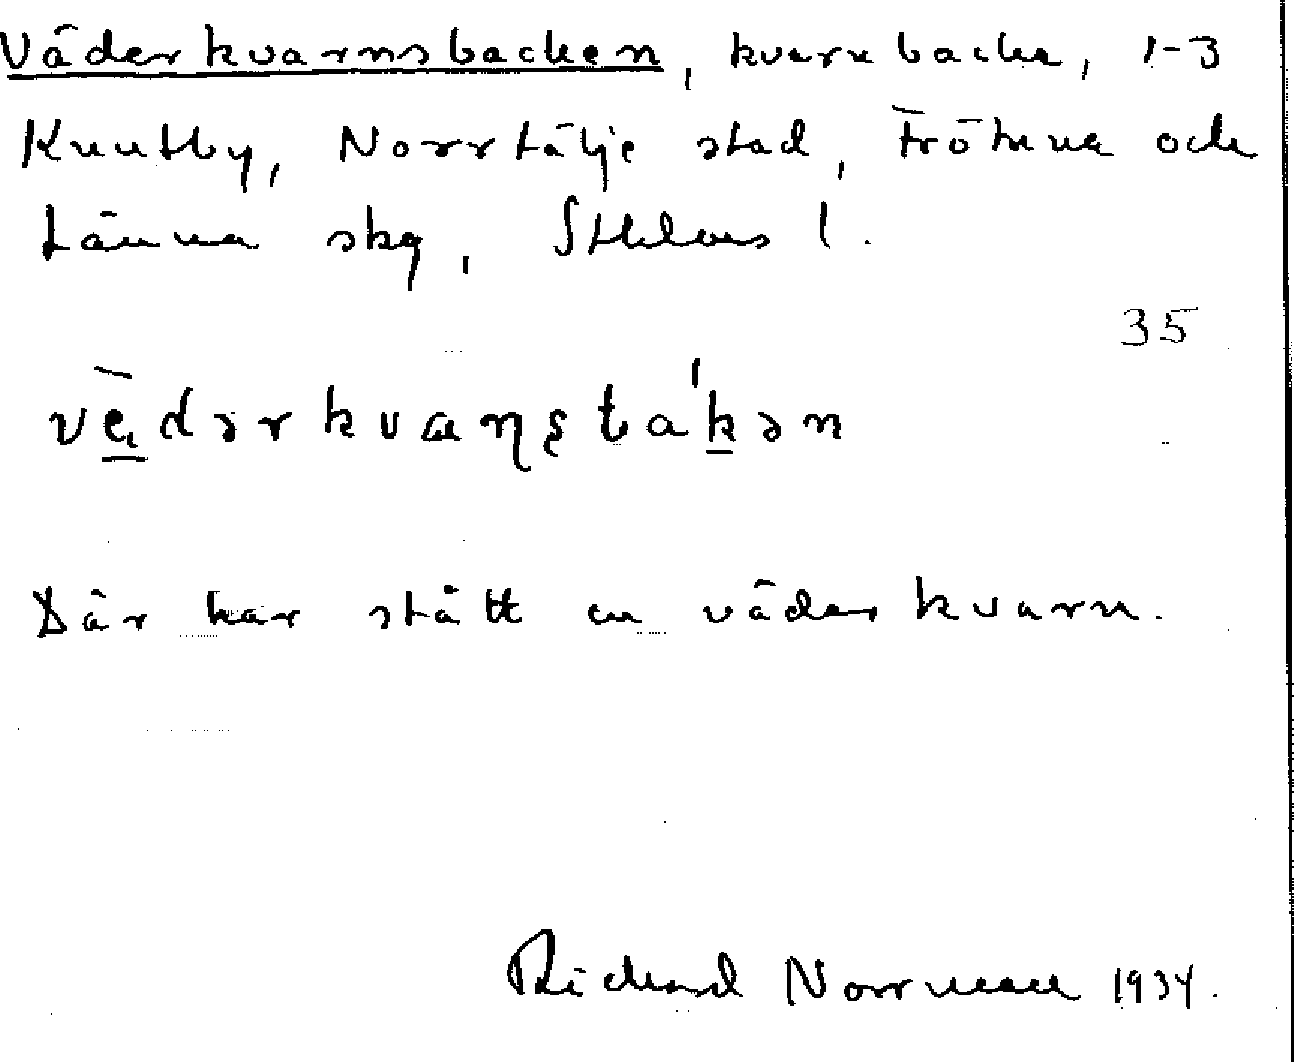 Väderkvarnsbacken, kvarnbacke, 1-3
Knutby, Norrtälje stad, Frötuna och
Länna skg, Sthlms l.
35
Där har stått en väderkvarn.
Richard Norrman 1934.